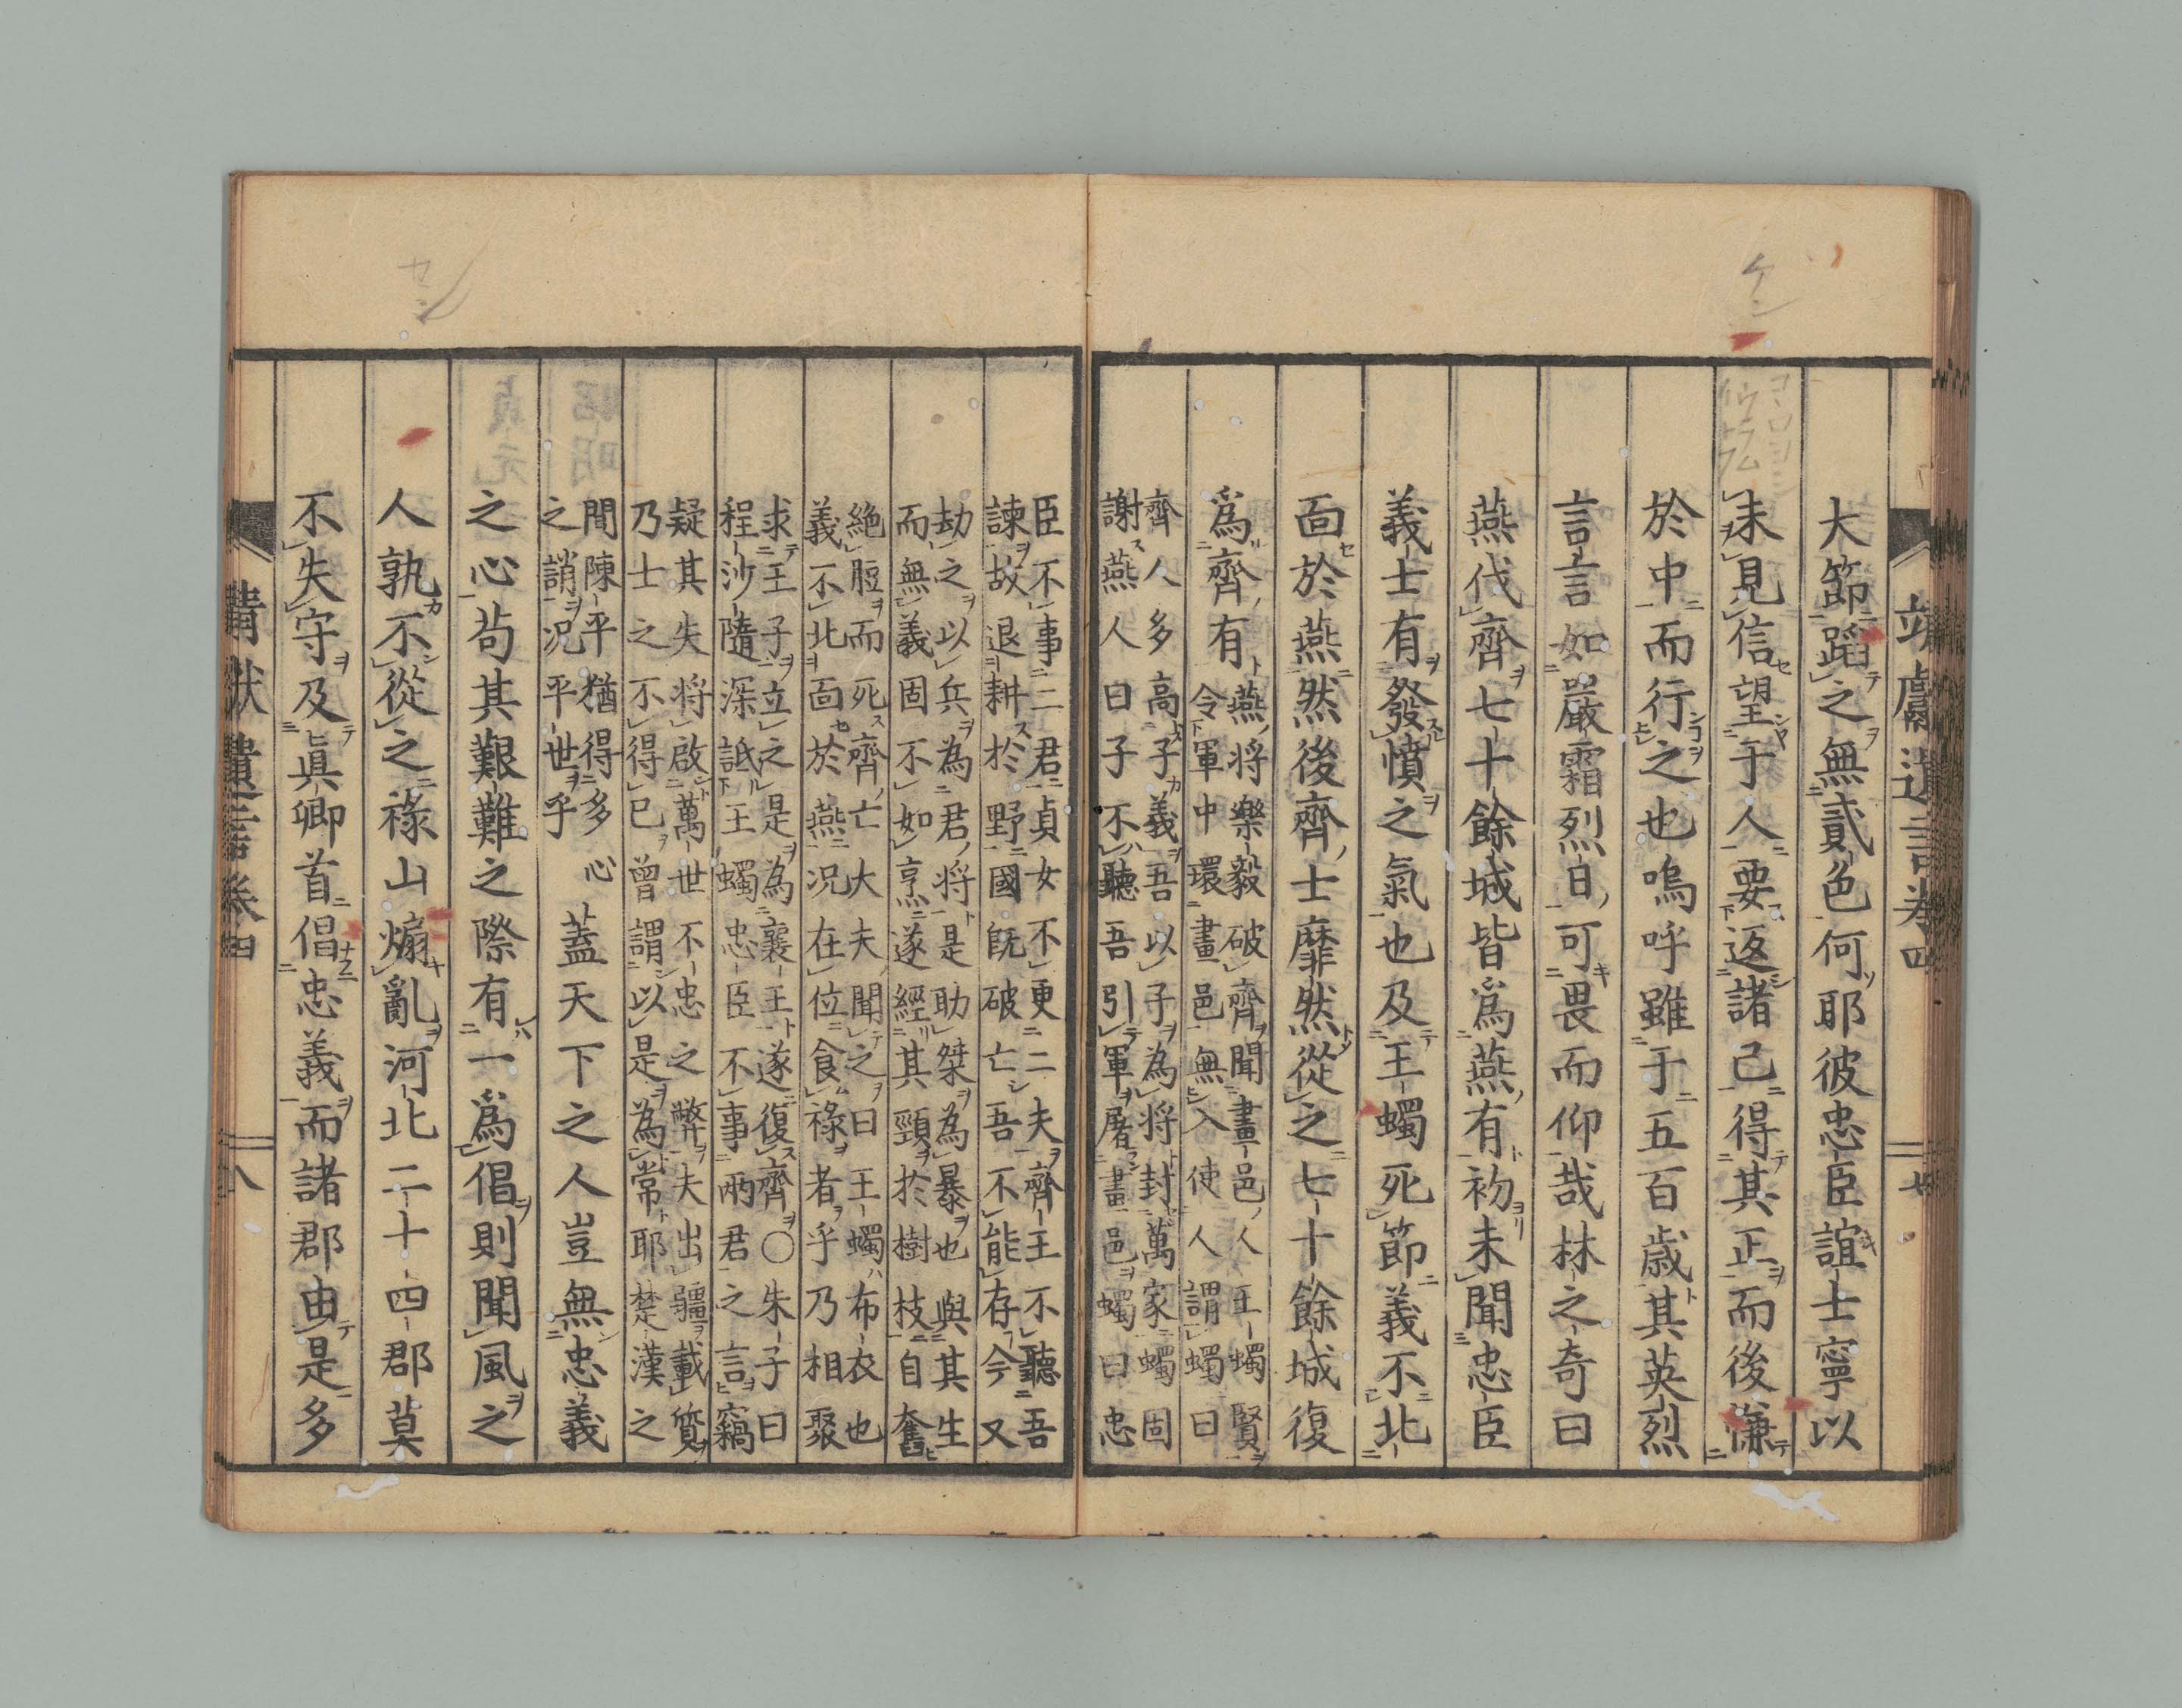 靖獻遺言卷四 七
大節蹈之無貳色何耶彼忠臣誼士寧以
未見信望于人要返諸己得其正而後慊
於中而行之也嗚呼雖于五百歳其英烈
言言如嚴霜烈日可畏而仰哉林之奇曰
燕伐齊七十餘城皆爲燕有初未聞忠臣
義士有發憤之氣也及王蠋死節義不北
面於燕然後齊士靡然從之七十餘城復
爲齊有
燕將樂毅破齊聞畫邑人王蠋賢
令軍中環畫邑無入使人謂蠋曰
齊人多高子義吾以子為將封萬家蠋固
謝燕人曰子不聽吾引軍屠畫邑蠋曰忠
臣不事二君貞女不更二夫齊王不聽吾
諫故退耕於野國既破亡吾不能存今又
劫之以兵為君將是助桀為暴也與其生
而無義固不如烹遂經其頸於樹枝自奮
絶脰而死齊亡大夫聞之曰王蠋布衣也
義不北面於燕況在位食祿者乎乃相聚
求王子立之是為襄王遂復齊○朱子曰
程沙隨深詆王蠋忠臣不事兩君之言竊
疑其失將啟萬世不忠之弊夫出疆載質
乃士之不得已曾謂以是為常耶楚漢之
間陳平猶得多心
之誚況平世乎
蓋天下之人豈無忠義
之心苟其艱難之際有一爲倡則聞風之
人孰不從之祿山煽亂河北二十四郡莫
不失守及眞卿首倡忠義而諸郡由是多
靖獻遺言卷四 八